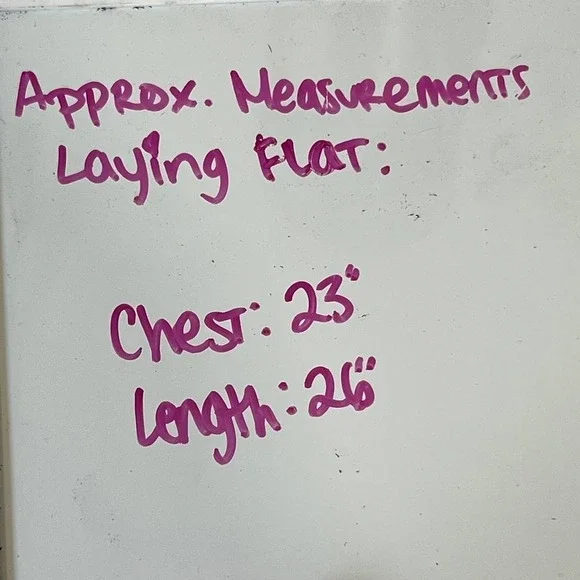 Approx. Measurements
Laying Flat:
Chest: 23"
Length: 26"